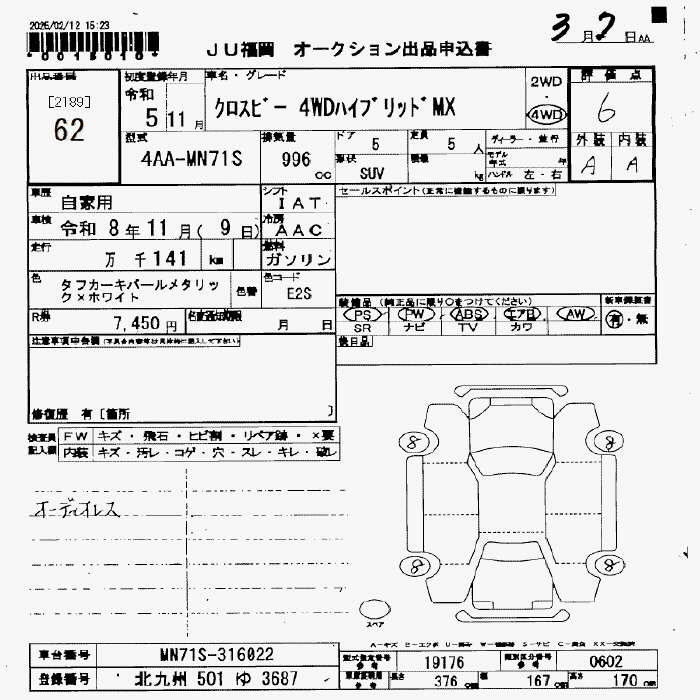 2026/02/12 15:23
3月7日AA
JU福岡 オークション出品申込書
出品番号
[2189]
62
初度登録年月
令和
5 11月
車名・グレード
クロスビー 4WDハイブリッドMX
2WD
・
4WD
評価点
6
型式
4AA-MN71S
排気量
996
cc
ドア
5
定員
5人
形状
SUV
積載
kg
ディーラー・並行
モデル年式 年
ハンドル 左・右
外装
A
内装
A
車歴
自家用
シフト
IAT
セールスポイント(正常に確認するものに限ります)
車検
令和 8年11月( 9日)
冷房
AAC
走行
万 千141 km
燃料
ガソリン
色
タフカーキパールメタリック×ホワイト
色替
色コード
E2S
装備品(純正品に限り○をつけてください)
新車保証書
PS PW ABS エアB AW
有・無
SR ナビ TV カワ
R券
7,450円
名変通知期限
月 日
後日品
注意事項申告欄
修復歴 有[箇所 ]
検査員記入欄
FW キズ・飛石・ヒビ割・リペア跡・×要
内装 キズ・汚レ・コゲ・穴・スレ・キレ・破レ
オーディオレス
8
8
8
8
スペア
車台番号
MN71S-316022
登録番号
北九州 501 ゆ 3687
型式指定番号
参考
19176
類別区分番号
参考
0602
長さ
376
幅
167
高さ
170